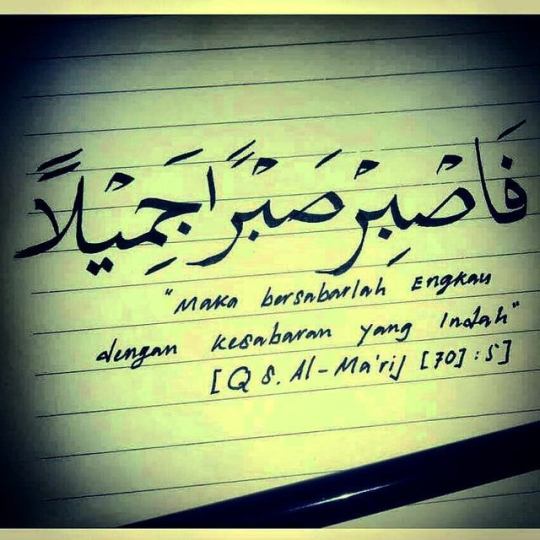 فَاصْبِرْ صَبْرًا جَمِيْلًا
"Maka bersabarlah Engkau
dengan kesabaran yang Indah"
[Q S. Al-Ma'rij [70] : 5]